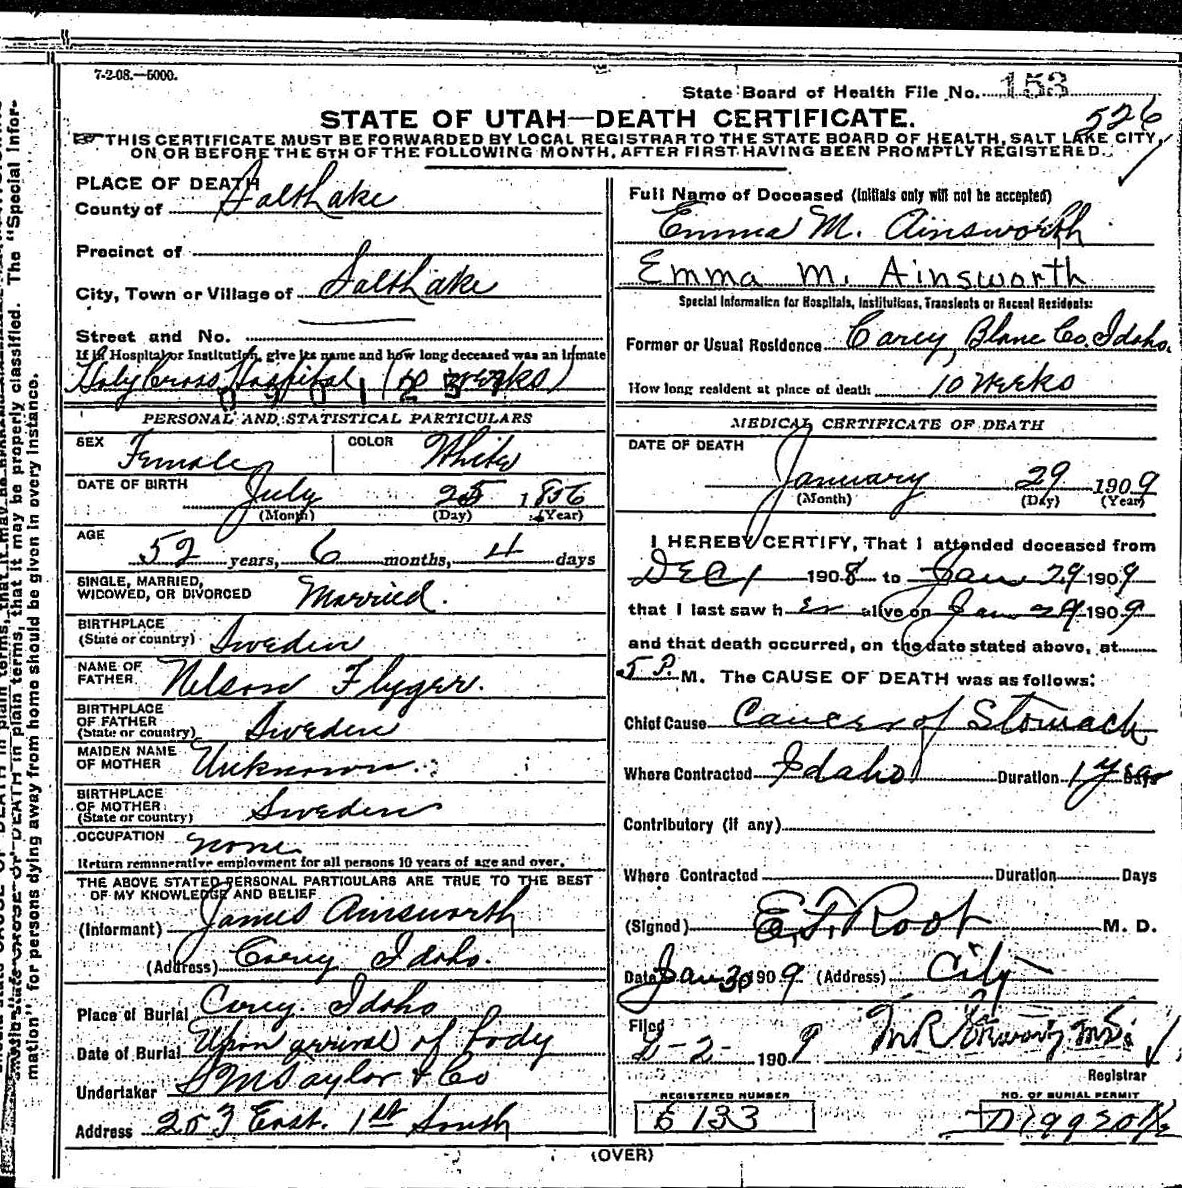 7-2-08.—5000.
State Board of Health File No. 153
526
STATE OF UTAH—DEATH CERTIFICATE.
THIS CERTIFICATE MUST BE FORWARDED BY LOCAL REGISTRAR TO THE STATE BOARD OF HEALTH, SALT LAKE CITY,
ON OR BEFORE THE 5TH OF THE FOLLOWING MONTH, AFTER FIRST HAVING BEEN PROMPTLY REGISTERED.
PLACE OF DEATH
County of Salt Lake
Precinct of
City, Town or Village of Salt Lake
Street and No.
If in Hospital or Institution, give its name and how long deceased was an inmate
Holy Cross Hospital (10 weeks)
PERSONAL AND STATISTICAL PARTICULARS
SEX Female COLOR White
DATE OF BIRTH July 25 1856
(Month) (Day) (Year)
AGE 52 years, 6 months, 4 days
SINGLE, MARRIED,
WIDOWED, OR DIVORCED Married.
BIRTHPLACE
(State or country) Sweden
NAME OF
FATHER Nelson Flyger.
BIRTHPLACE
OF FATHER
(State or country) Sweden
MAIDEN NAME
OF MOTHER Unknown.
BIRTHPLACE
OF MOTHER
(State or country) Sweden
OCCUPATION none
Return remunerative employment for all persons 10 years of age and over.
THE ABOVE STATED PERSONAL PARTICULARS ARE TRUE TO THE BEST
OF MY KNOWLEDGE AND BELIEF
(Informant) James Ainsworth
(Address) Carey Idaho.
Place of Burial Carey. Idaho
Date of Burial Upon arrival of body
Undertaker S M Taylor & Co
Address 253 East. 1st South
Full Name of Deceased (Initials only will not be accepted)
Emma M. Ainsworth
Emma M. Ainsworth
Special Information for Hospitals, Institutions, Transients or Recent Residents:
Former or Usual Residence Carey, Blane Co. Idaho.
How long resident at place of death 10 Weeks
MEDICAL CERTIFICATE OF DEATH
DATE OF DEATH
January 29 1909
(Month) (Day) (Year)
I HEREBY CERTIFY, That I attended deceased from
Dec 1 1908 to Jan 29 1909
that I last saw h er alive on Jan 29 1909
and that death occurred, on the date stated above, at
5 P. M. The CAUSE OF DEATH was as follows:
Chief Cause Cancer of Stomach
Where Contracted Idaho Duration 1 year Days
Contributory (if any)
Where Contracted Duration Days
(Signed) E. F. Root M. D.
Date Jan 30 1909 (Address) City
Filed
2-2- 1909
Registrar
REGISTERED NUMBER
6133
NO. OF BURIAL PERMIT
(OVER)
in plain terms, that it may be properly classified. The "Special Infor-
mation" for persons dying away from home should be given in every instance.